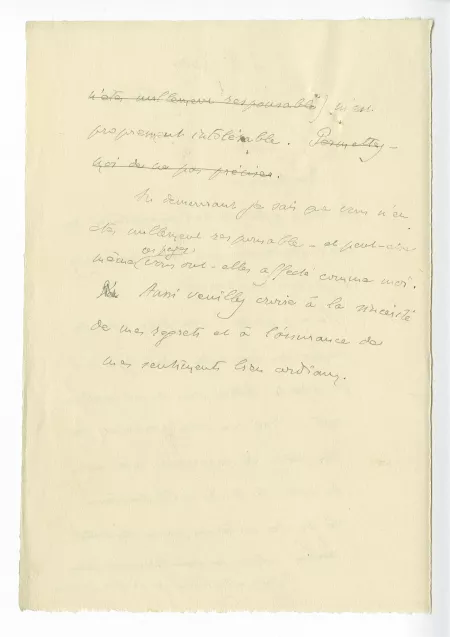 n'êtes nullement responsable) m'est
proprement intolérable. Permettez-
moi de ne pas préciser.
Au demeurant je sais que vous n'en
êtes nullement responsable - et peut-être
ces pages
même vous ont-elles affecté comme moi.
Aussi veuillez croire à la sincérité
de mes regrets et à l'assurance de
mes sentiments bien cordiaux.